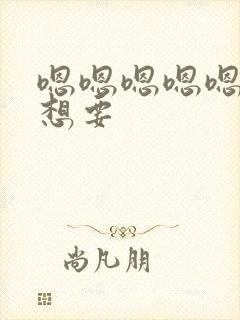 嗯嗯嗯嗯嗯
想要
尚凡朋